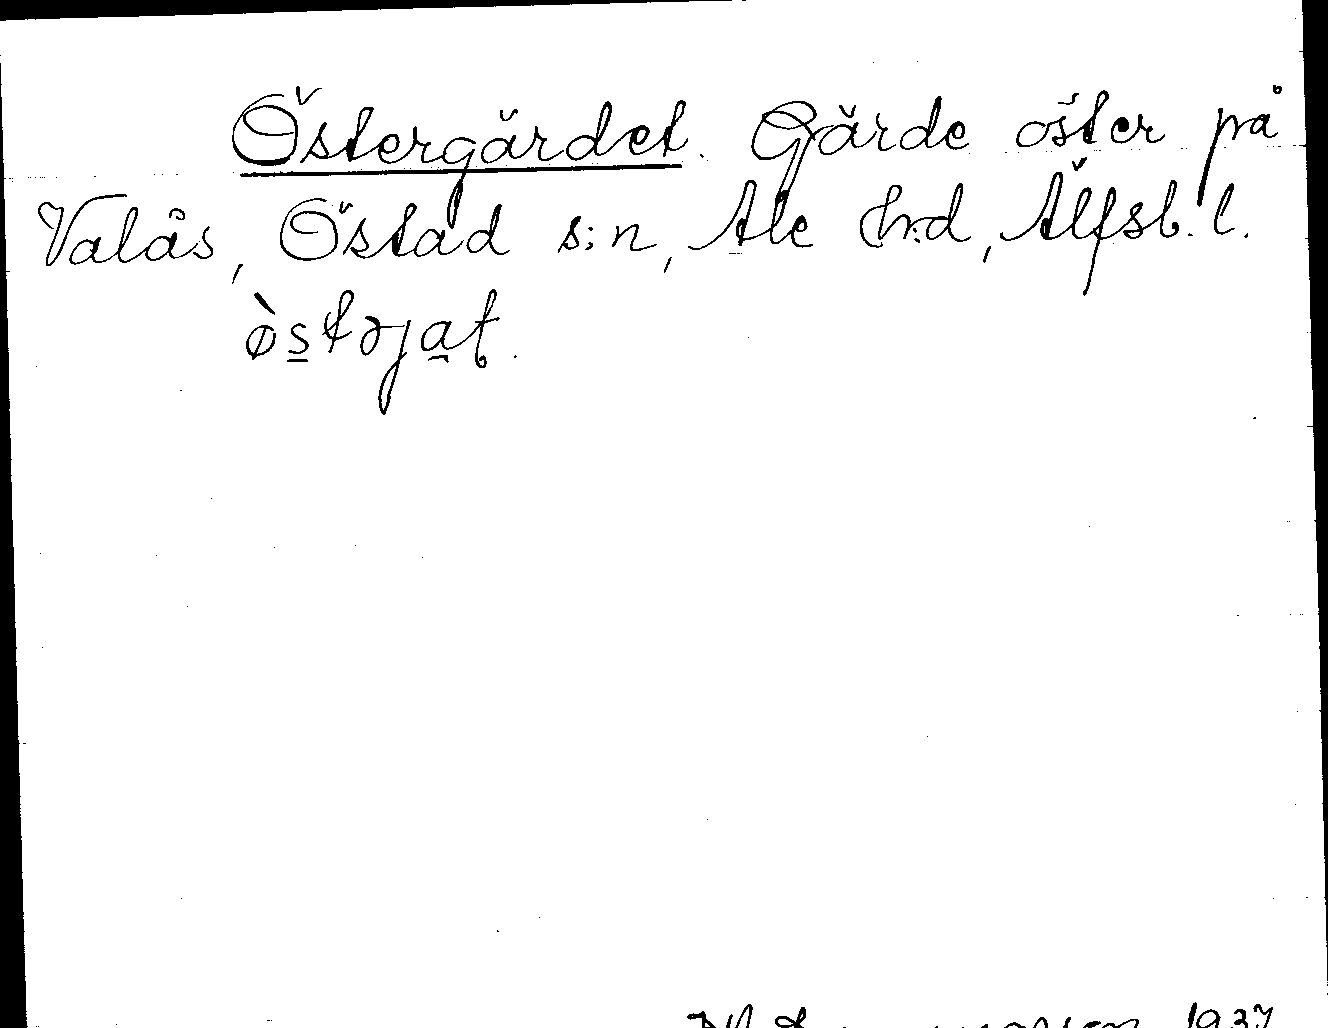 Östergärdet. Gärde öster på
Valås, Östad s:n, Ale h:d, Älfsb. l.
òstəjat.
1937